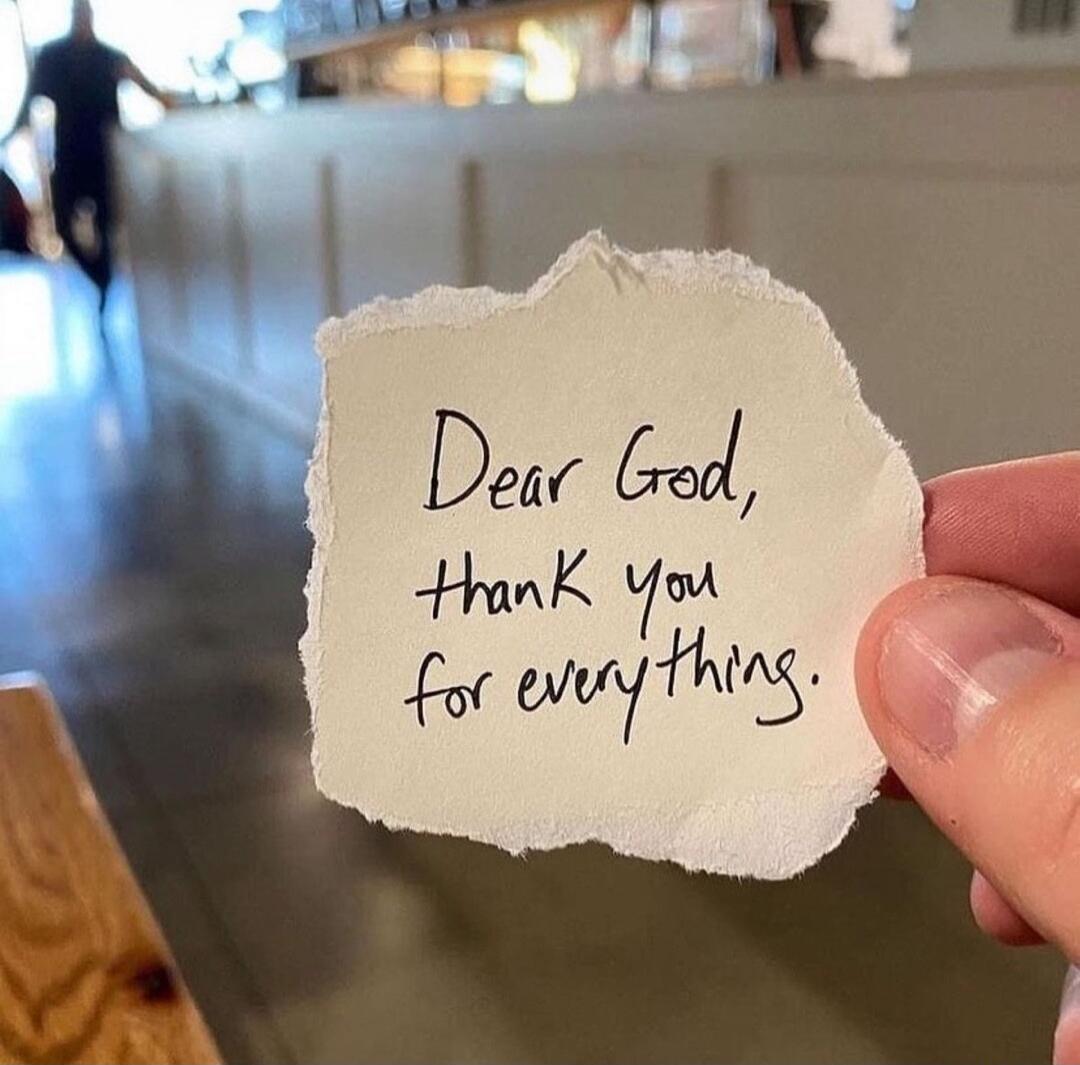 Dear God,
thank you
for everything.